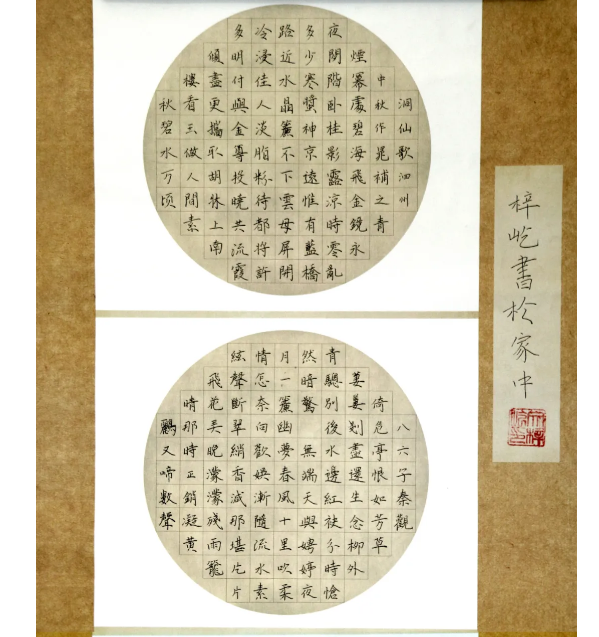 洞仙歌泗州
中秋作晁補之青
煙冪處碧海飛金鏡永
夜閒階卧桂影露涼時零亂
多少寒螿神京遠惟有藍橋
路近水晶簾不下雲母屏開
冷浸佳人淡脂粉待都將許
多明付與金尊投曉共流霞
傾盡更攜取胡牀上南
樓看玉做人間素
秋碧水万頃
八六子秦觀
倚危亭恨如芳草
萋萋剗盡還生念柳外
青驄別後水邊紅袂分時愴
然暗驚 無端天與娉婷夜
月一簾幽夢春風十里吹柔
情怎奈向歡娛漸隨流水素
絃聲斷翠綃香減那堪片片
飛花弄晚濛濛殘雨籠
晴那時正銷凝黃
鸝又啼數聲
梓屹書於家中